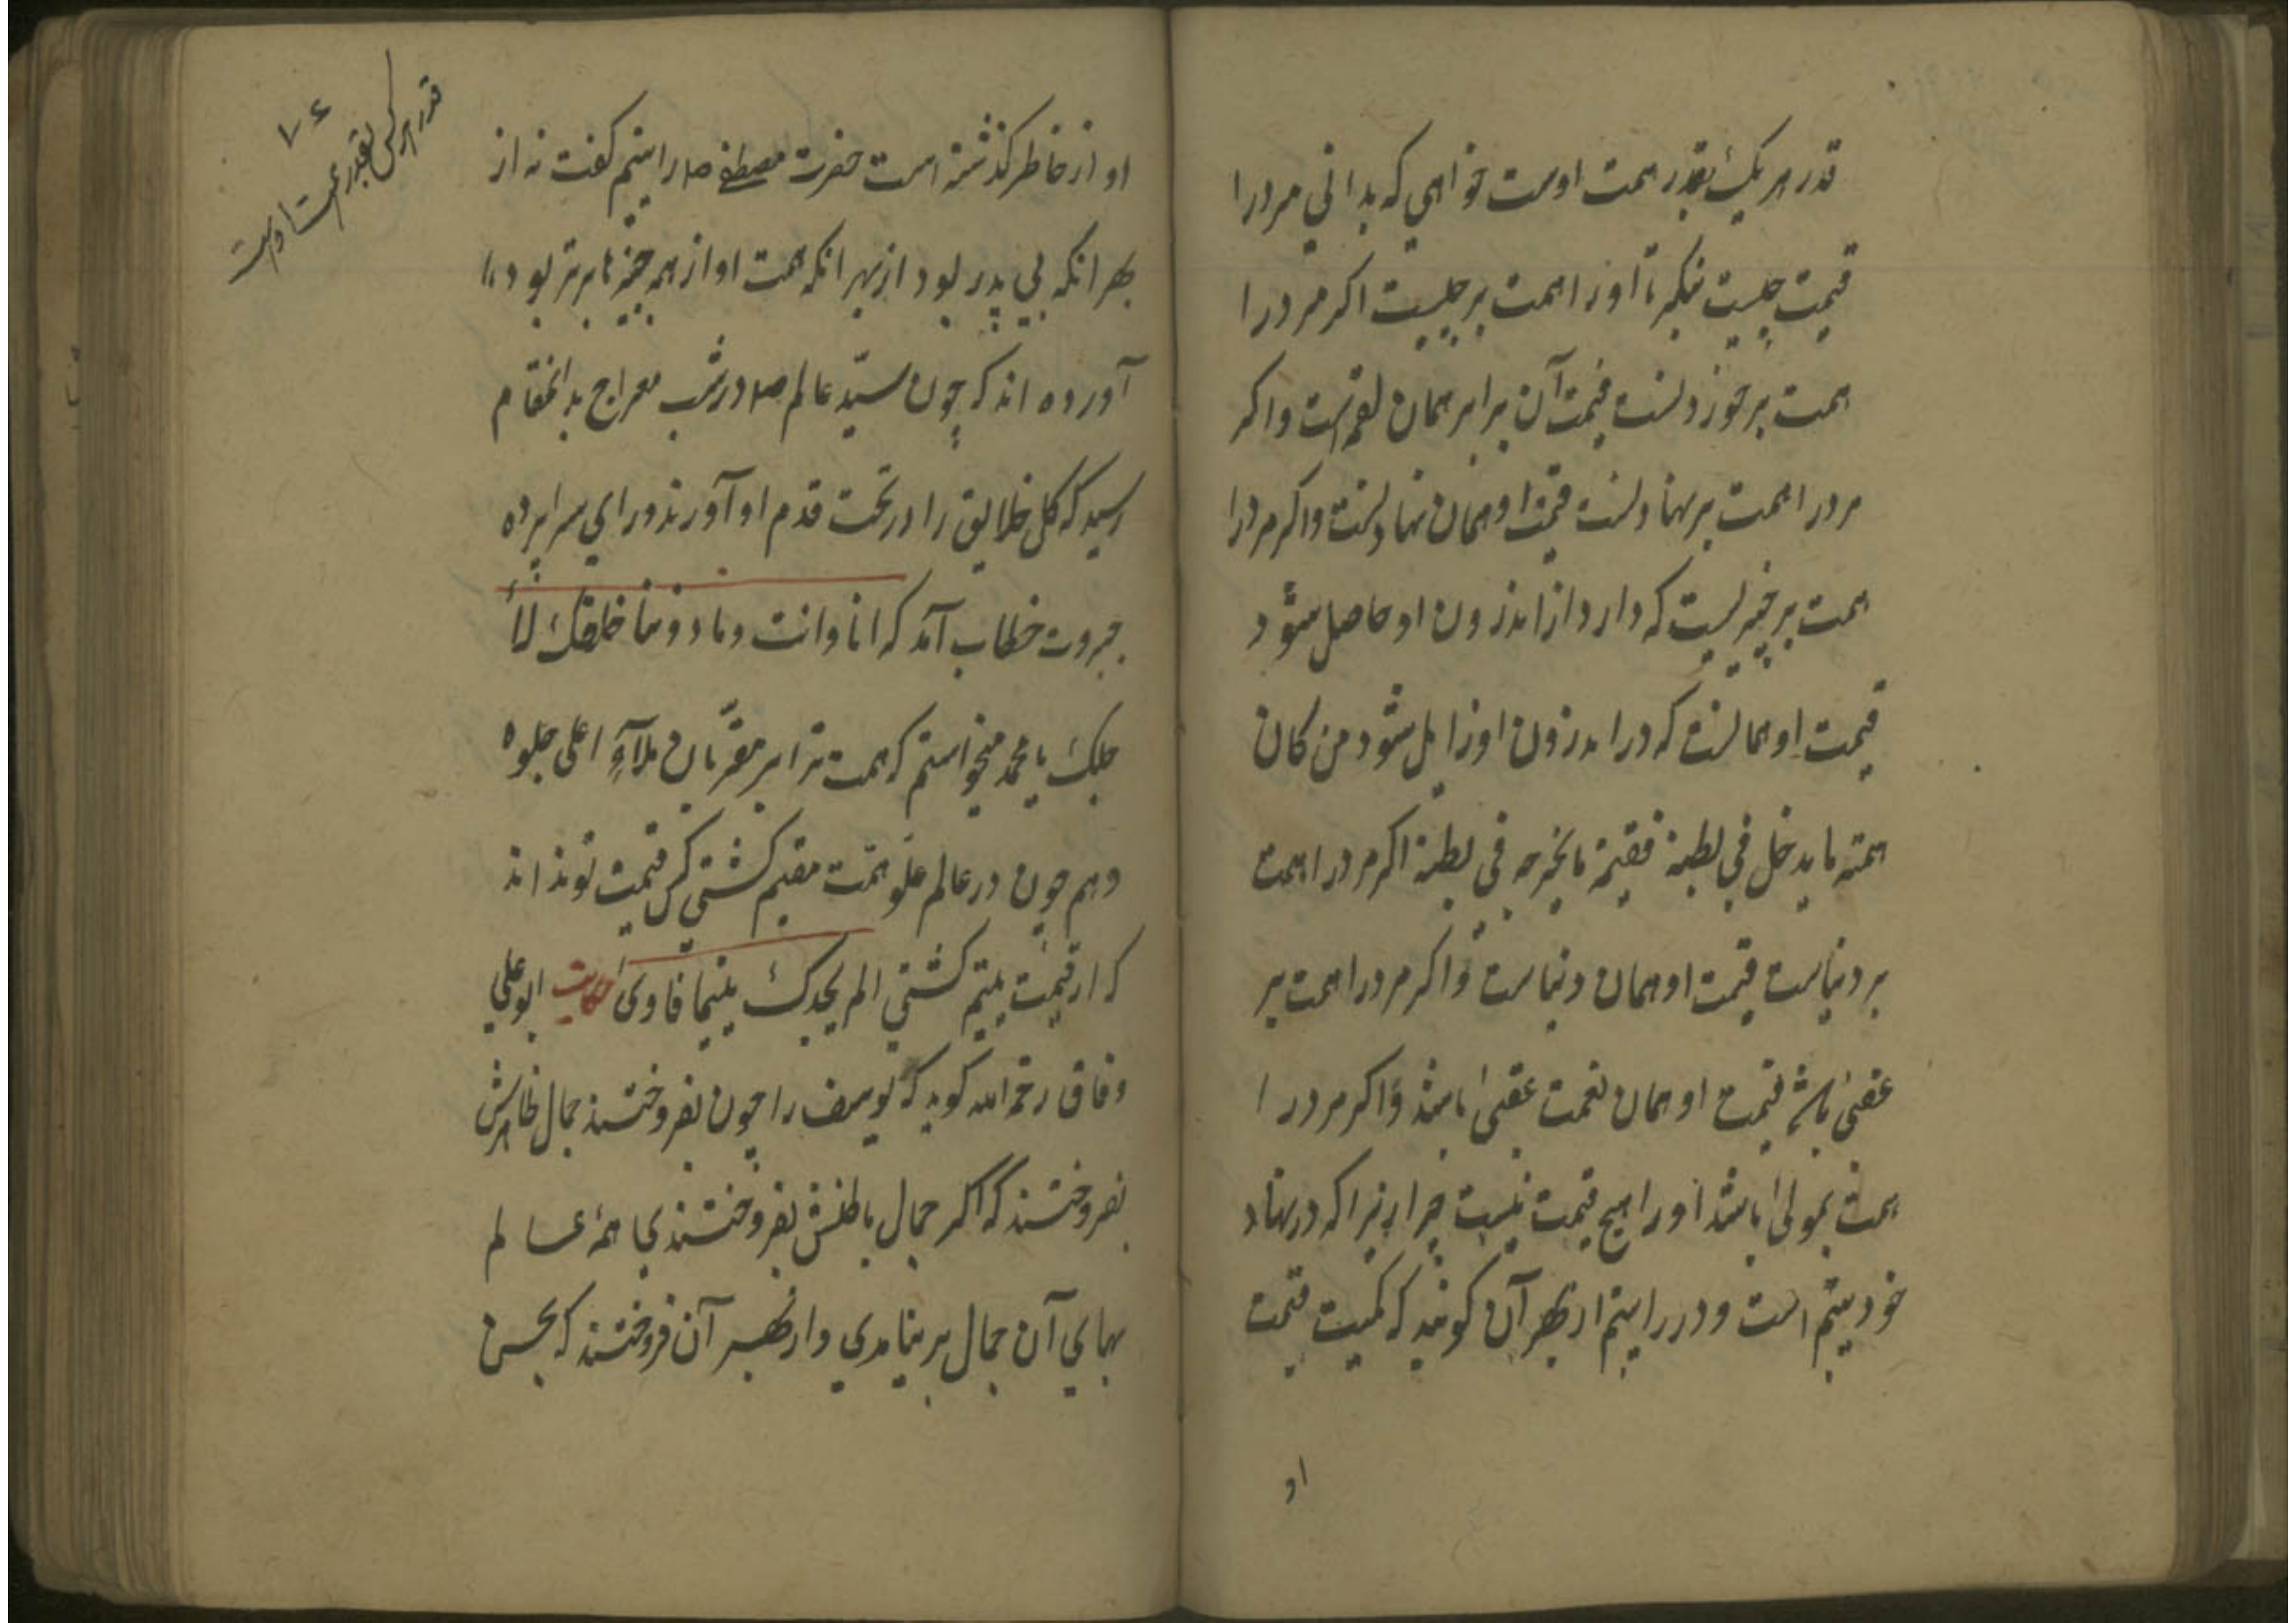 قدر هر یک بقدر همت اوست خواهی که بدانی مرد را
قیمت چیست بنکر تا او را همت بر چیست اکر مرد را
همت بر خوردنست قیمت آن برابر همان لقمه است و اکر
مرد را همت بر نهادنست قیمت او همان نهادنست و اکر مرد را
همت بر چیزیست که دارد از اندرون او حاصل شود
قیمت او همانست که در اندرون او زایل شود من کان
همته ما یدخل فی بطنه فقیمته ما یخرجه فی بطنه اکر مرد را همت
بر دنیاست قیمت او همان دنیاست و اکر مرد را همت بر
عقبیٰ باشد قیمت او همان نعمت عقبیٰ باشد و اکر مرد را
همت بمولیٰ باشد او را هیچ قیمت نیست چرا زیرا که در نهاد
خود یتیم است و در را یتیم از بهر آن کویند که کمیت قیمت
او
او از خاطر کذشته است حضرت مصطفی ص را یتیم کفت نه از
بهر انکه بی پدر بود از بهر انکه همت او از همه چیزها برتر بود
آورده اند که چون سید عالم ص در شب معراج بدانمقام
رسید که کل خلایق را در تحت قدم او آورند ورای سراپرده
جبروت خطاب آمد که انا وانت وما دوننا خلقک لأ
جلک یا محمد میخواستم که همت ترا بر مقربان ملاء اعلی جلوه
دهم چون در عالم علو همت مقیم کشتی کس قیمت تو نداند
که از قیمت یتیم کشتی الم یجدک یتیما فاوی حکایت ابو علی
دقاق رحمه الله کوید که یوسف را چون بفروختند جمال ظاهرش
بفروختند که اکر جمال باطنش بفروختندی همه عالم
بهای آن جمال بر نیامدی و از بهر آن فروختند که بحسن
۷۶
قدر هر کس بقدر همت اوست